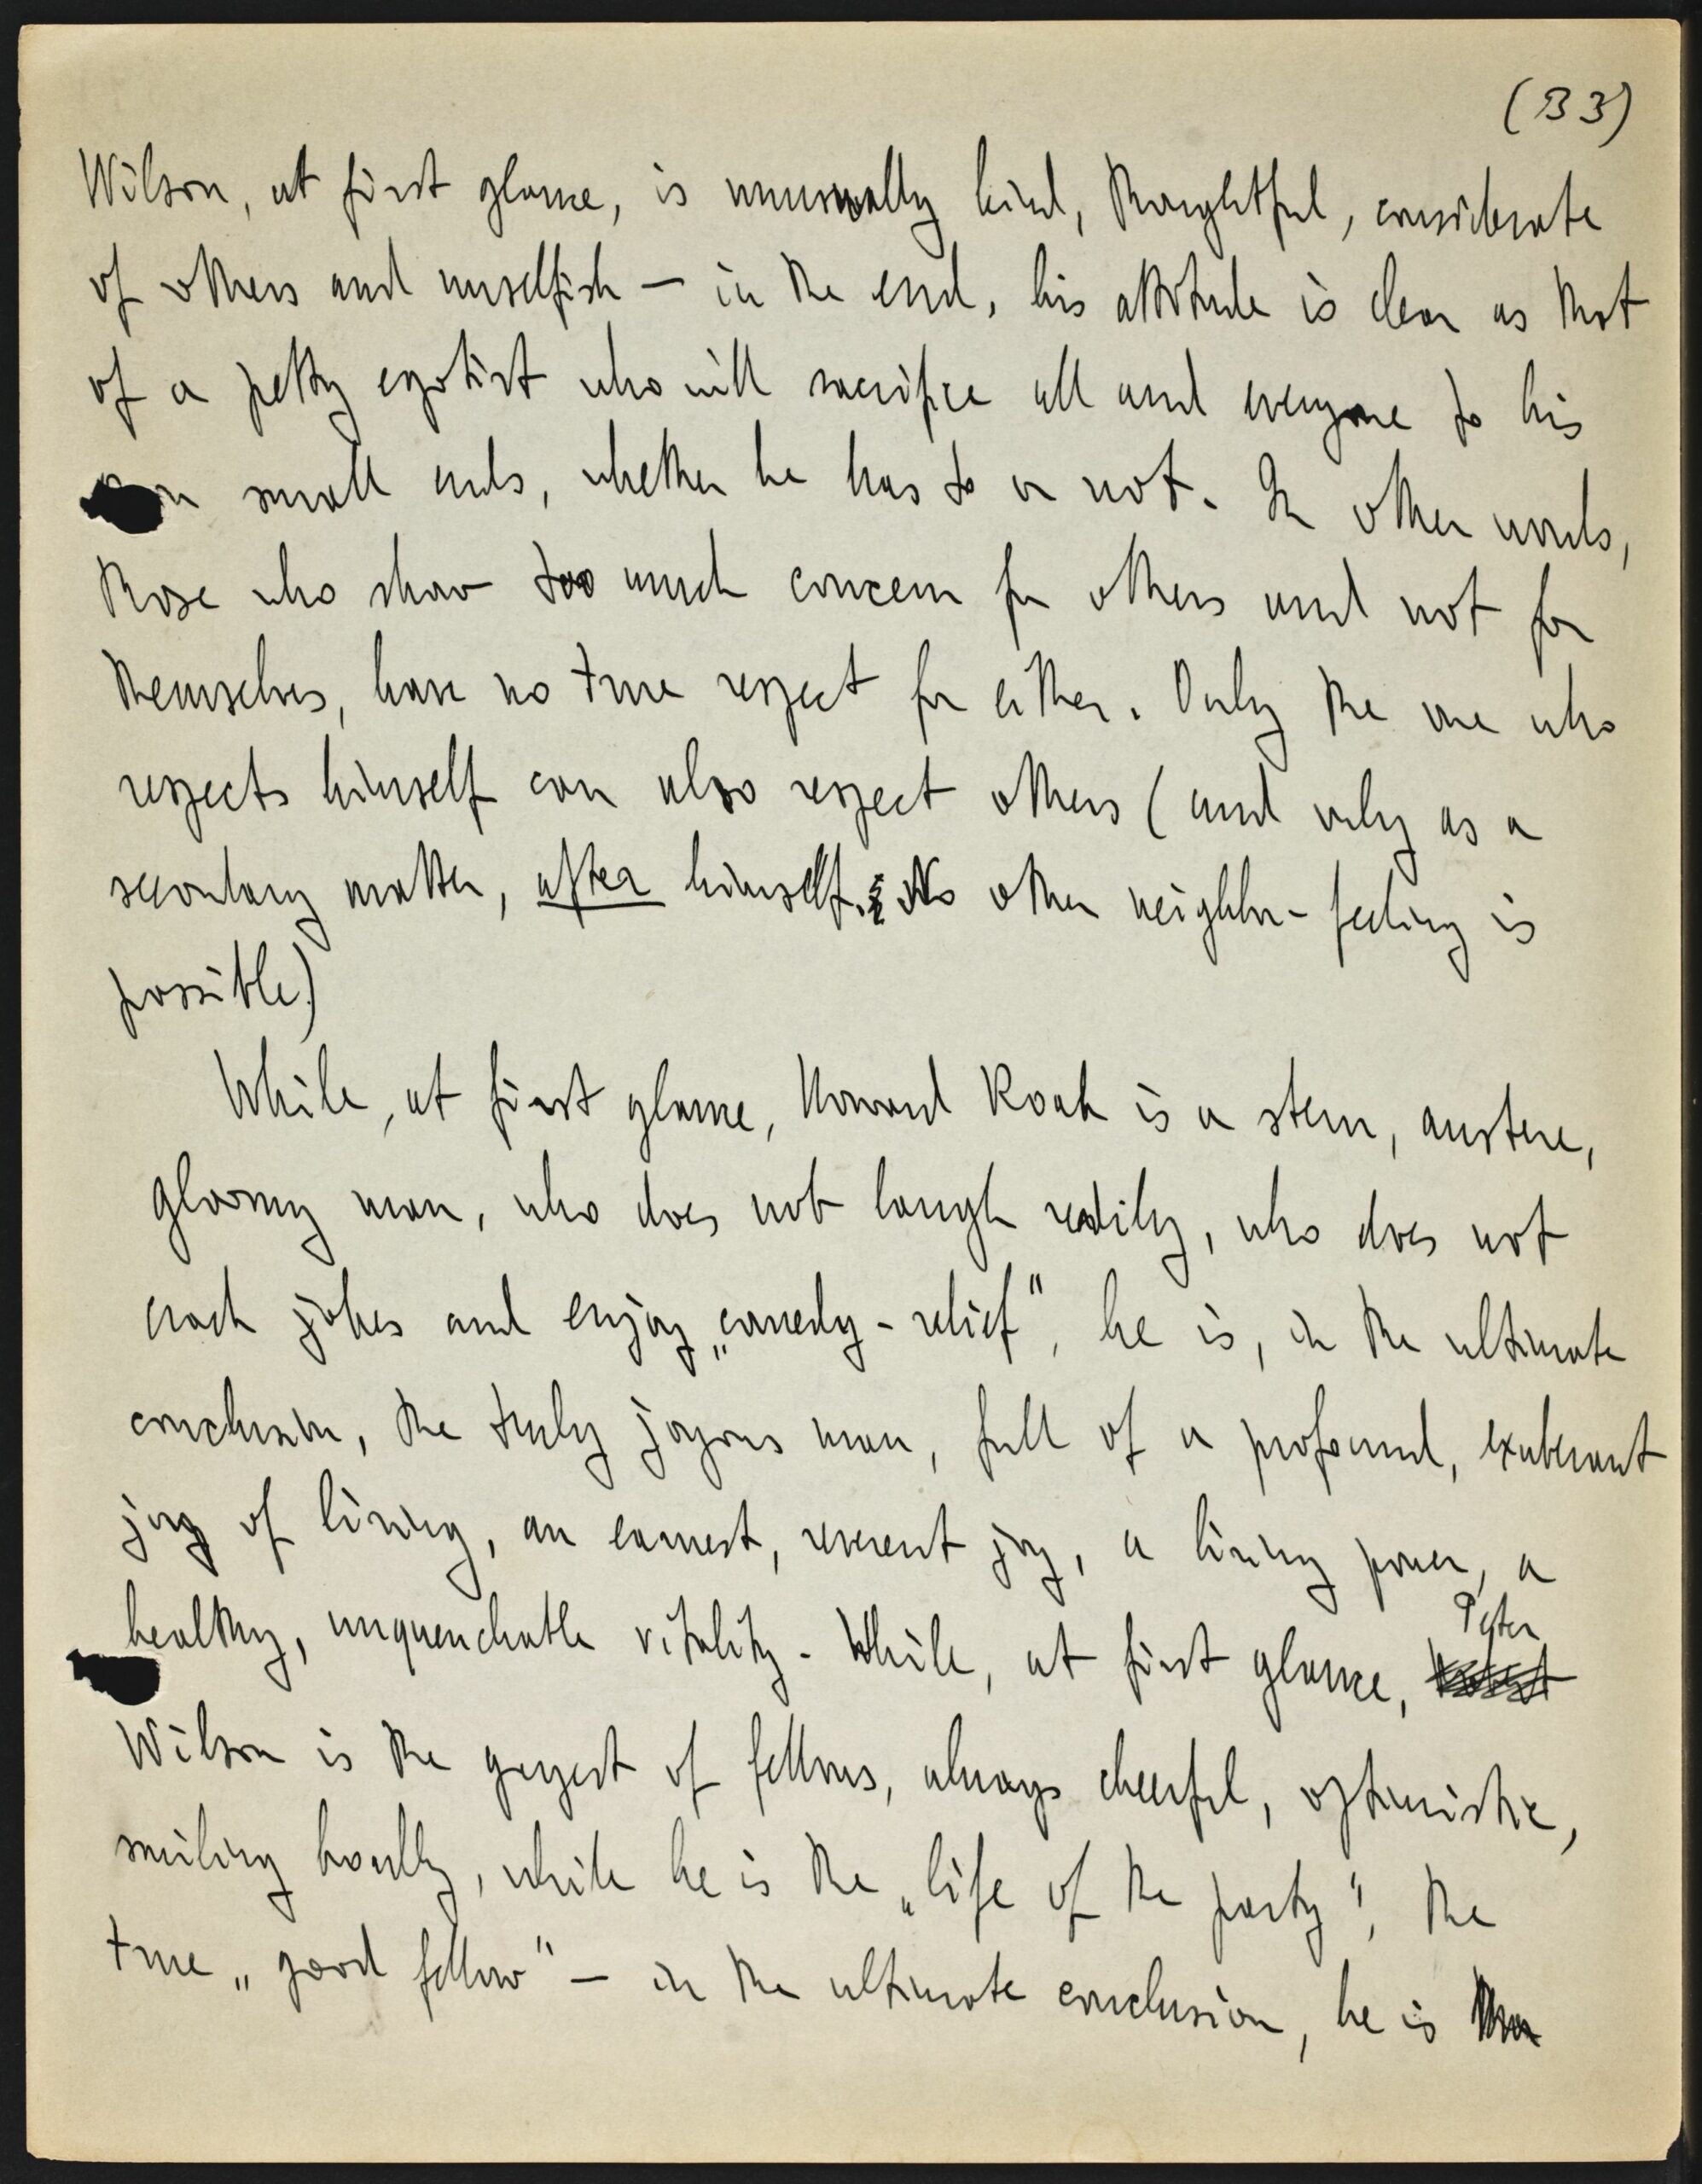 (B3)
Wilson, at first glance, is unusually kind, thoughtful, considerate
of others and unselfish — in the end, his attitude is clear as that
of a petty egotist who will sacrifice all and everyone to his
own small ends, whether he has to or not. In other words,
those who show too much concern for others and not for
themselves, have no true respect for either. Only the one who
respects himself can also respect others (and only as a
secondary matter, after himself. No other neighbor-feeling is
possible.)
While, at first glance, Howard Roark is a stern, austere,
gloomy man, who does not laugh readily, who does not
crack jokes and enjoy „comedy-relief", he is, in the ultimate
conclusion, the truly joyous man, full of a profound, exuberant
joy of living, an earnest, reverent joy, a living power, a
healthy, unquenchable vitality. While, at first glance, Peter
Wilson is the gayest of fellows, always cheerful, optimistic,
smiling broadly, while he is the „life of the party", the
true „good fellow" — in the ultimate conclusion, he is